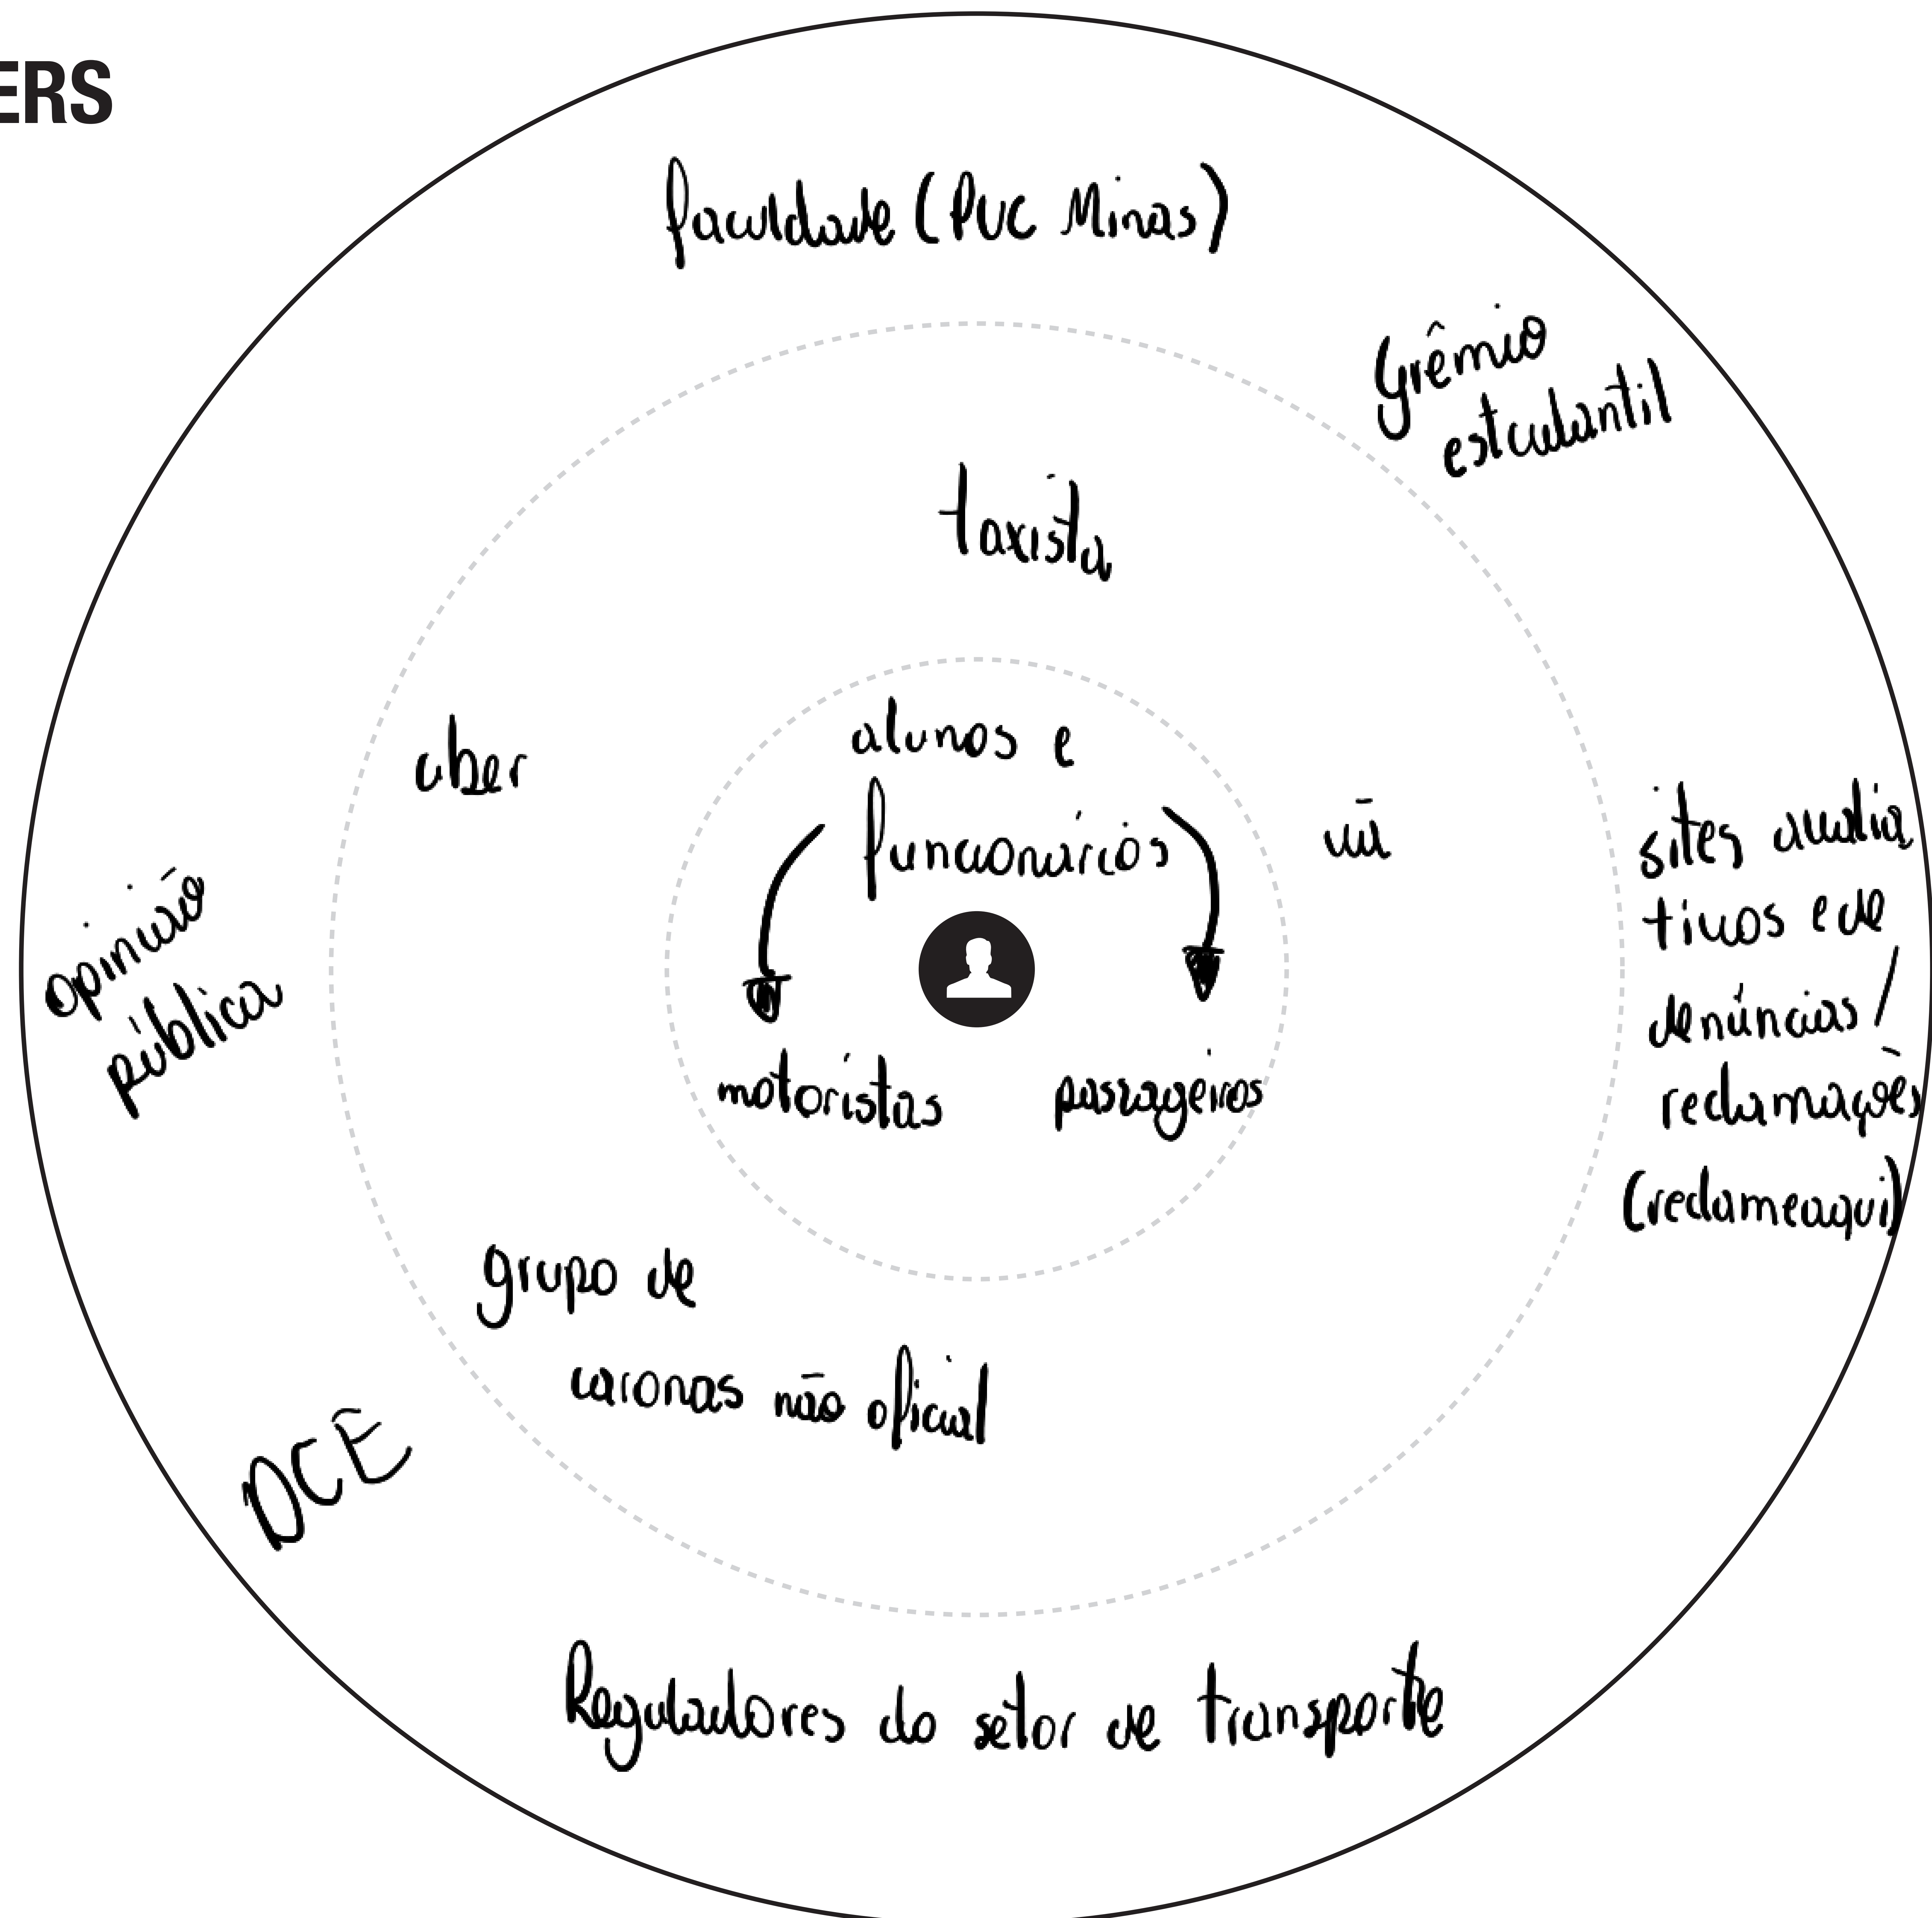 ERS
faculdade (PUC Minas)
Grêmio
estudantil
taxista
uber
alunos e
funcionários
motoristas
passageiros
sites avalia
tivos e de
denúncias /
reclamações
(reclameaqui)
opinião
pública
grupo de
caronas não oficial
DCE
Reguladores do setor de transporte